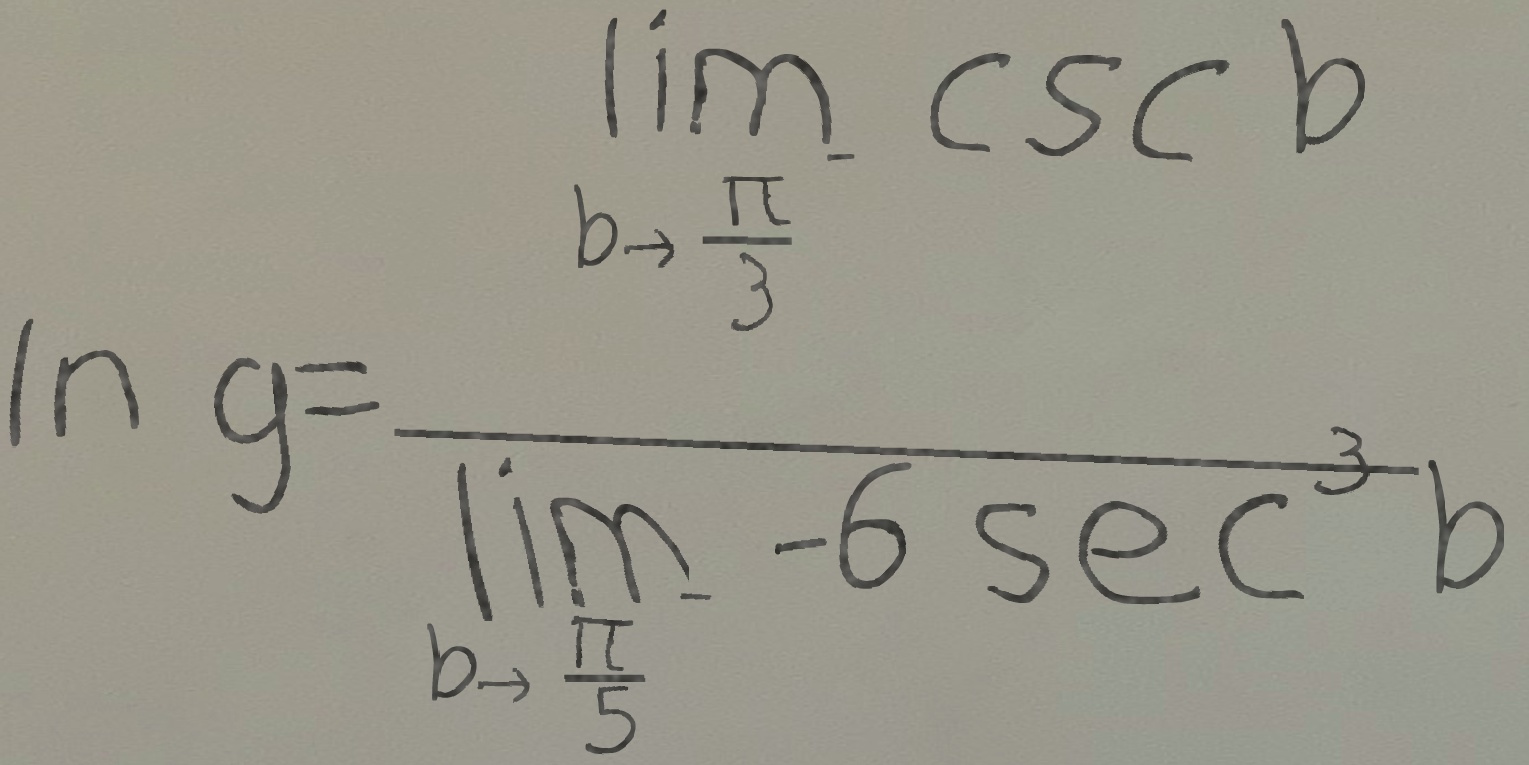 \ln g = \frac{\lim_{b \to \frac{\pi}{3}^{-}} \csc b}{\lim_{b \to \frac{\pi}{5}^{-}} -6 \sec^{3} b}